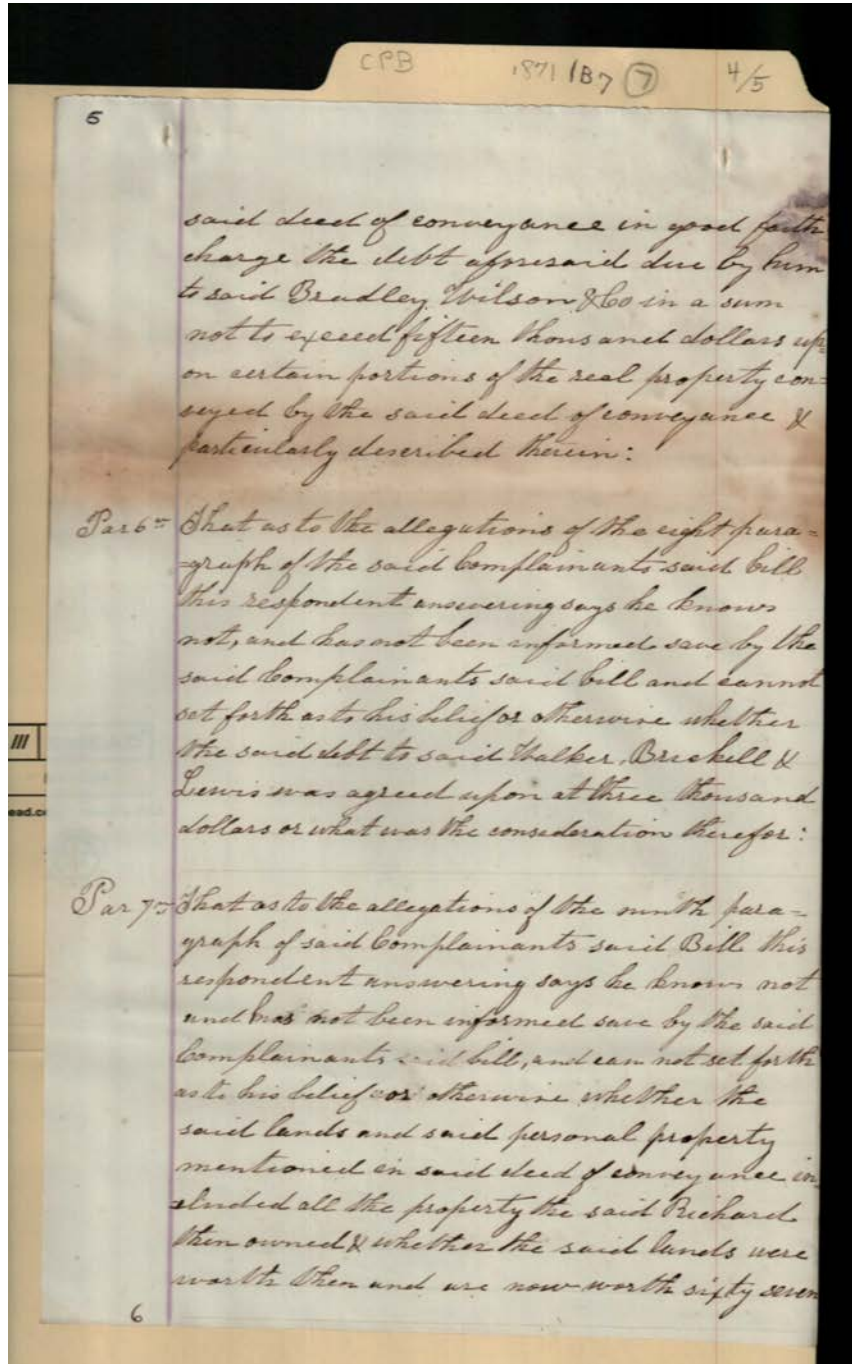 CPB 1871 1B7 7 4/5
5
said deed of conveyance in good faith
charge the debt aforesaid due by him
to said Bradley Wilson & Co in a sum
not to exceed fifteen thousand dollars up=
on certain portions of the real property con=
veyed by the said deed of conveyance &
particularly described therein:
Par 6th That as to the allegations of the eight para=
=graph of the said Complainants said bill
this respondent answering says he knows
not, and has not been informed save by the
said Complainants said bill and cannot
set forth as to his belief or otherwise whether
the said debt to said Walker, Brickell &
Lewis was agreed upon at three thousand
dollars or what was the consideration therefor:
Par 7th That as to the allegations of the ninth para=
graph of said Complainants said Bill this
respondent answering says he knows not
and has not been informed save by the said
Complainants said bill, and can not set forth
as to his belief or otherwise whether the
said lands and said personal property
mentioned in said deed of conveyance in=
=cluded all the property the said Richard
then owned & whether the said lands were
worth then and are now worth sixty seven
6